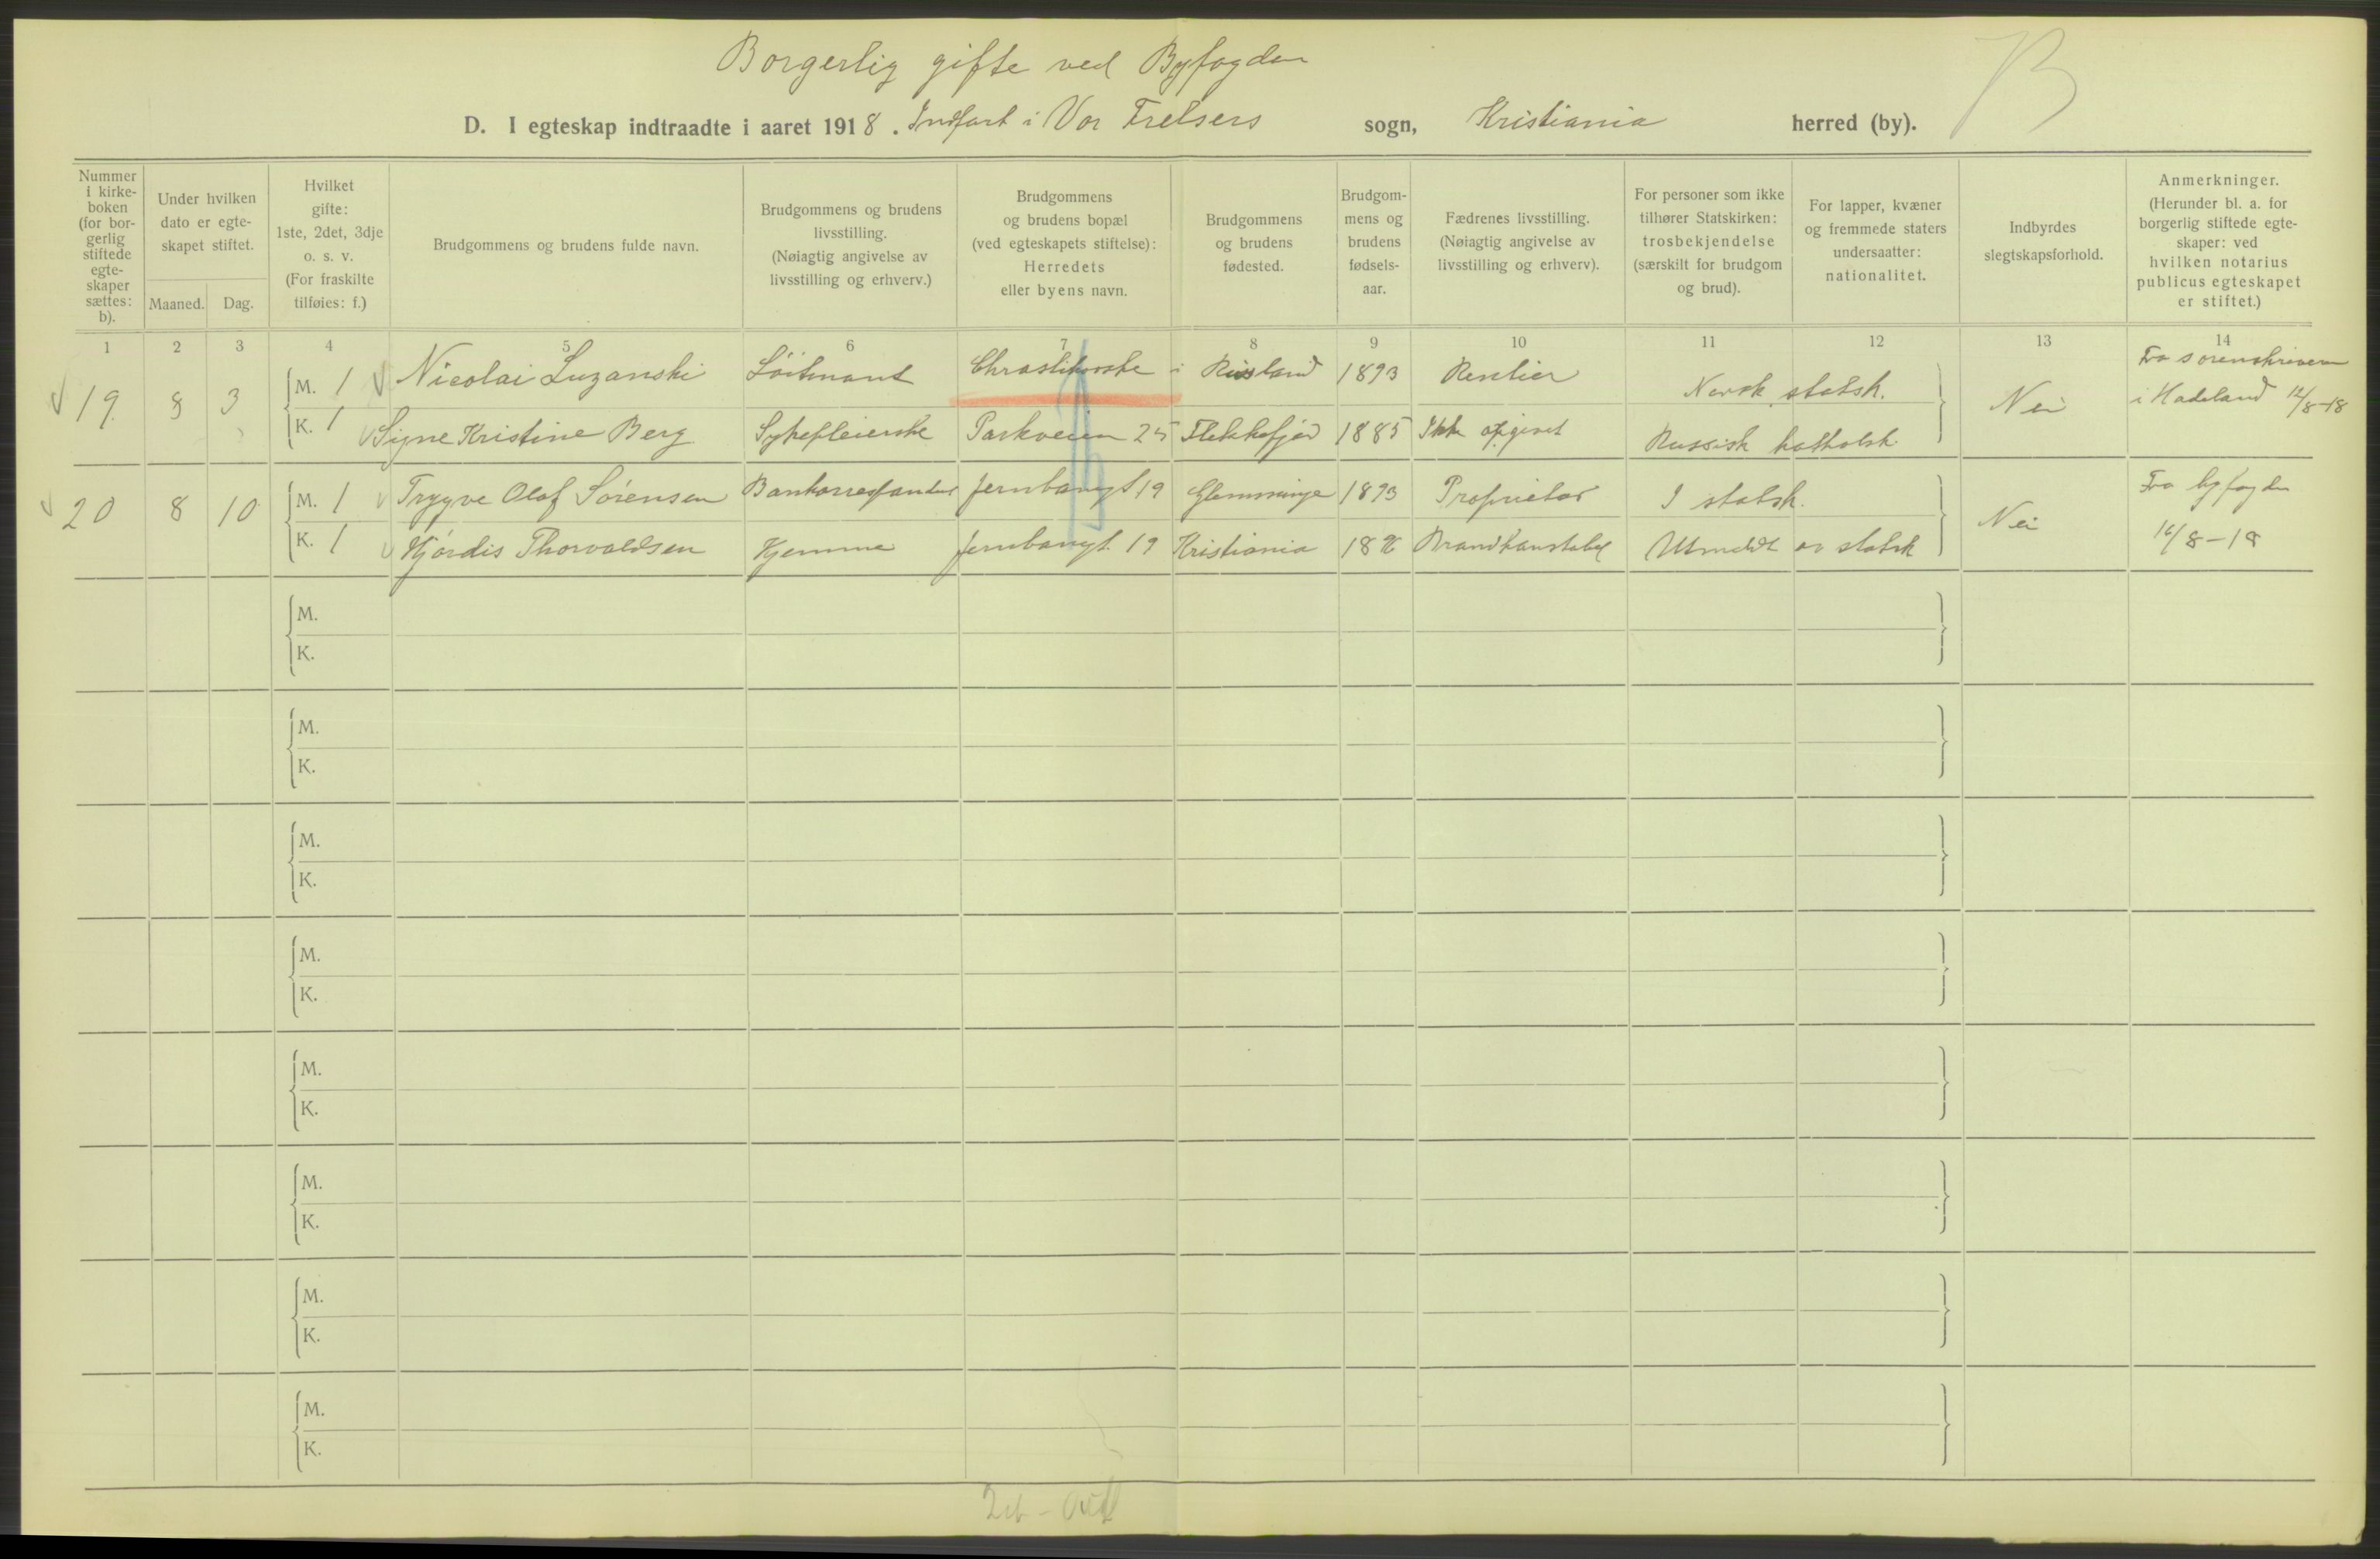 Borgerlig gifte ved Byfogden
D. I egteskap indtraadte i aaret 1918. Indført i Vor Frelsers sogn, Kristiania herred (by).
B
Nummer i kirke-boken (for bor-gerlig stiftede egte-skaper sættes: b).
Under hvilken dato er egte-skapet stiftet.
Maaned. Dag.
Hvilket gifte: 1ste, 2det, 3dje o. s. v. (For fraskilte tilføies: f.)
Brudgommens og brudens fulde navn.
Brudgommens og brudens livsstilling. (Nøiagtig angivelse av livsstilling og erhverv.)
Brudgommens og brudens bopæl (ved egteskapets stiftelse): Herredets eller byens navn.
Brudgommens og brudens fødested.
Brudgom-mens og brudens fødsels-aar.
Fædrenes livsstilling. (Nøiagtig angivelse av livsstilling og erhverv).
For personer som ikke tilhører Statskirken: trosbekjendelse (særskilt for brudgom og brud).
For lapper, kvæner og fremmede staters undersaatter: nationalitet.
Indbyrdes slegtskapsforhold.
Anmerkninger. (Herunder bl. a. for borgerlig stiftede egte-skaper: ved hvilken notarius publicus egteskapet er stiftet.)
1 2 3 4 5 6 7 8 9 10 11 12 13 14
19 8 3 M. 1 Nicolai Luzanski Löitnant i Russland 1893 Rentier Norsk statsk. Nei Fra sorenskriveren i Hadeland 12/8-18
K. 1 Signe Kristine Berg Sykepleierske Parkveien 25 Flekkefjord 1885 Ikke opgivet Russisk katholsk
20 8 10 M. 1 Trygve Olaf Sörensen Bankorrespondent Jernbanegt 19 Glemminge 1893 Proprietær I statsk. Nei Fra byfogden 16/8-18
K. 1 Hjördis Thorvaldsen Hjemme Jernbanegt. 19 Kristiania Brandkonstabel Utmeldt av statsk
M.
K.
M.
K.
M.
K.
M.
K.
M.
K.
M.
K.
M.
K.
M.
K.